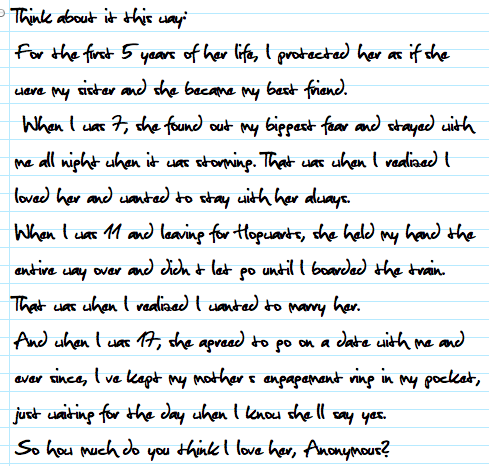 Think about it this way:
For the first 5 years of her life, I protected her as if she
were my sister and she became my best friend.
When I was 7, she found out my biggest fear and stayed with
me all night when it was storming. That was when I realized I
loved her and wanted to stay with her always.
When I was 11 and leaving for Hogwarts, she held my hand the
entire way over and didn t let go until I boarded the train.
That was when I realized I wanted to marry her.
And when I was 17, she agreed to go on a date with me and
ever since, I ve kept my mother s engagement ring in my pocket,
just waiting for the day when I know she ll say yes.
So how much do you think I love her, Anonymous?